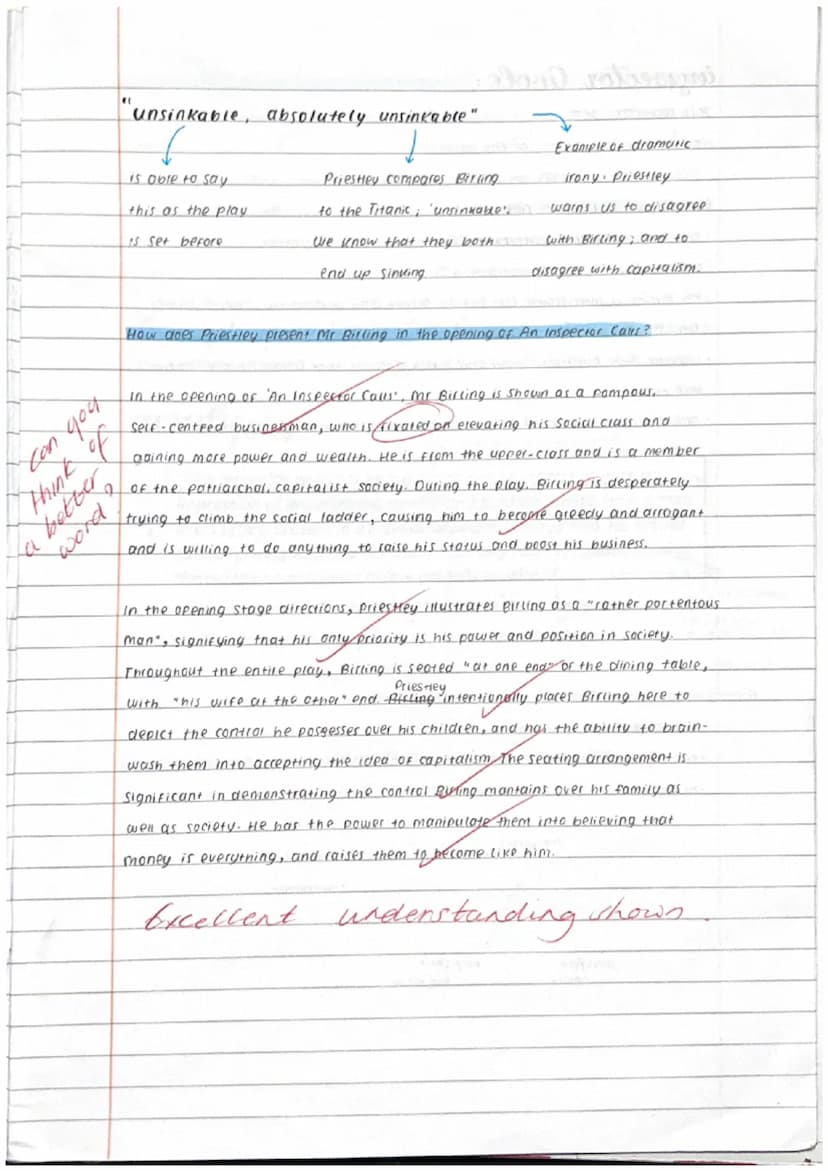 "unsinkable, absolutely unsinkable"
is able to say
this as the play
is set before
Priestley compares Birling
to the Titanic; 'unsinkable'.
We know that they both
end up sinking
Example of dramatic
irony. Priestley
warns us to disagree
with Birling; and to
disagree with capitalism.
How does Priestley present Mr Birling in the opening of An Inspector Calls?
In the opening of 'An Inspector Calls', Mr Birling is shown as a pompous,
self-centred businessman, who is fixated on elevating his social class and
gaining more power and wealth. He is from the upper-class and is a member
of the patriarchal, capitalist society. During the play, Birling is desperately
trying to climb the social ladder, causing him to become greedy and arrogant
and is willing to do anything to raise his status and boost his business.
can you
think of
a better
word?
In the opening stage directions, Priestley illustrates Birling as a "rather portentous
man", signifying that his only priority is his power and position in society.
Throughout the entire play, Birling is seated "at one end" of the dining table,
with "his wife at the other" end. Birling Priestley intentionally places Birling here to
depict the control he possesses over his children, and has the ability to brain-
wash them into accepting the idea of capitalism. The seating arrangement is
significant in demonstrating the control Birling mantains over his family as
well as society. He has the power to manipulate them into believing that
money is everything, and raises them to become like him.
Excellent understanding shown.